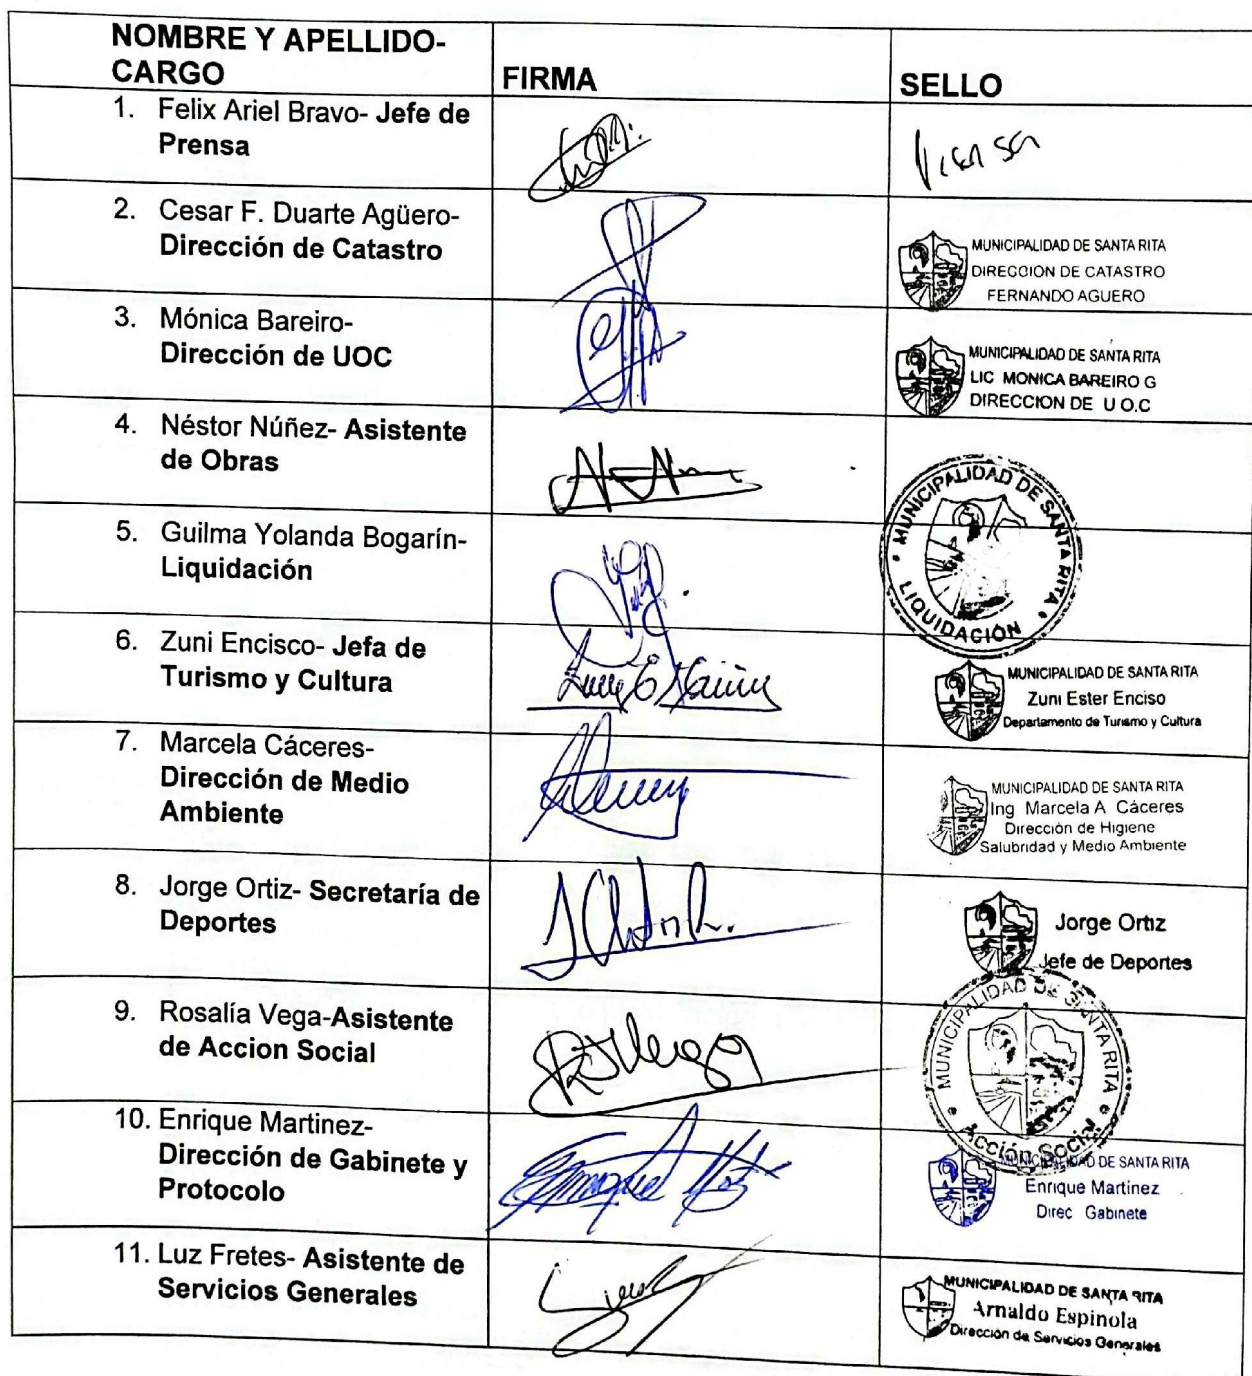 NOMBRE Y APELLIDO-
CARGO
FIRMA
SELLO
1. Felix Ariel Bravo- Jefe de
Prensa
Prensa
2. Cesar F. Duarte Agüero-
Dirección de Catastro
MUNICIPALIDAD DE SANTA RITA
DIRECCION DE CATASTRO
FERNANDO AGUERO
3. Mónica Bareiro-
Dirección de UOC
MUNICIPALIDAD DE SANTA RITA
LIC MONICA BAREIRO G
DIRECCION DE U O.C
4. Néstor Núñez- Asistente
de Obras
5. Guilma Yolanda Bogarín-
Liquidación
MUNICIPALIDAD DE SANTA RITA
LIQUIDACIÓN
6. Zuni Encisco- Jefa de
Turismo y Cultura
MUNICIPALIDAD DE SANTA RITA
Zuni Ester Enciso
Departamento de Turismo y Cultura
7. Marcela Cáceres-
Dirección de Medio
Ambiente
MUNICIPALIDAD DE SANTA RITA
Ing Marcela A Cáceres
Dirección de Higiene
Salubridad y Medio Ambiente
8. Jorge Ortiz- Secretaría de
Deportes
Jorge Ortiz
Jefe de Deportes
9. Rosalía Vega-Asistente
de Accion Social
MUNICIPALIDAD DE SANTA RITA
Acción Social
10. Enrique Martinez-
Dirección de Gabinete y
Protocolo
MUNICIPALIDAD DE SANTA RITA
Enrique Martinez
Direc Gabinete
11. Luz Fretes- Asistente de
Servicios Generales
MUNICIPALIDAD DE SANTA RITA
Arnaldo Espinola
Dirección de Servicios Generales